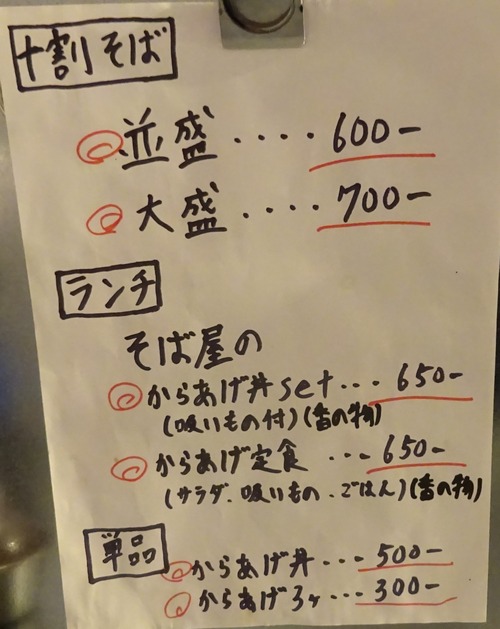 十割そば
並盛 ‥‥ 600-
大盛 ‥‥ 700-
ランチ
そば屋の
からあげ丼 set ‥‥ 650-
(吸いもの付)(香の物)
からあげ定食 ‥‥ 650-
(サラダ、吸いもの、ごはん)(香の物)
単品
からあげ丼 ‥‥ 500-
からあげ3ヶ ‥‥ 300-